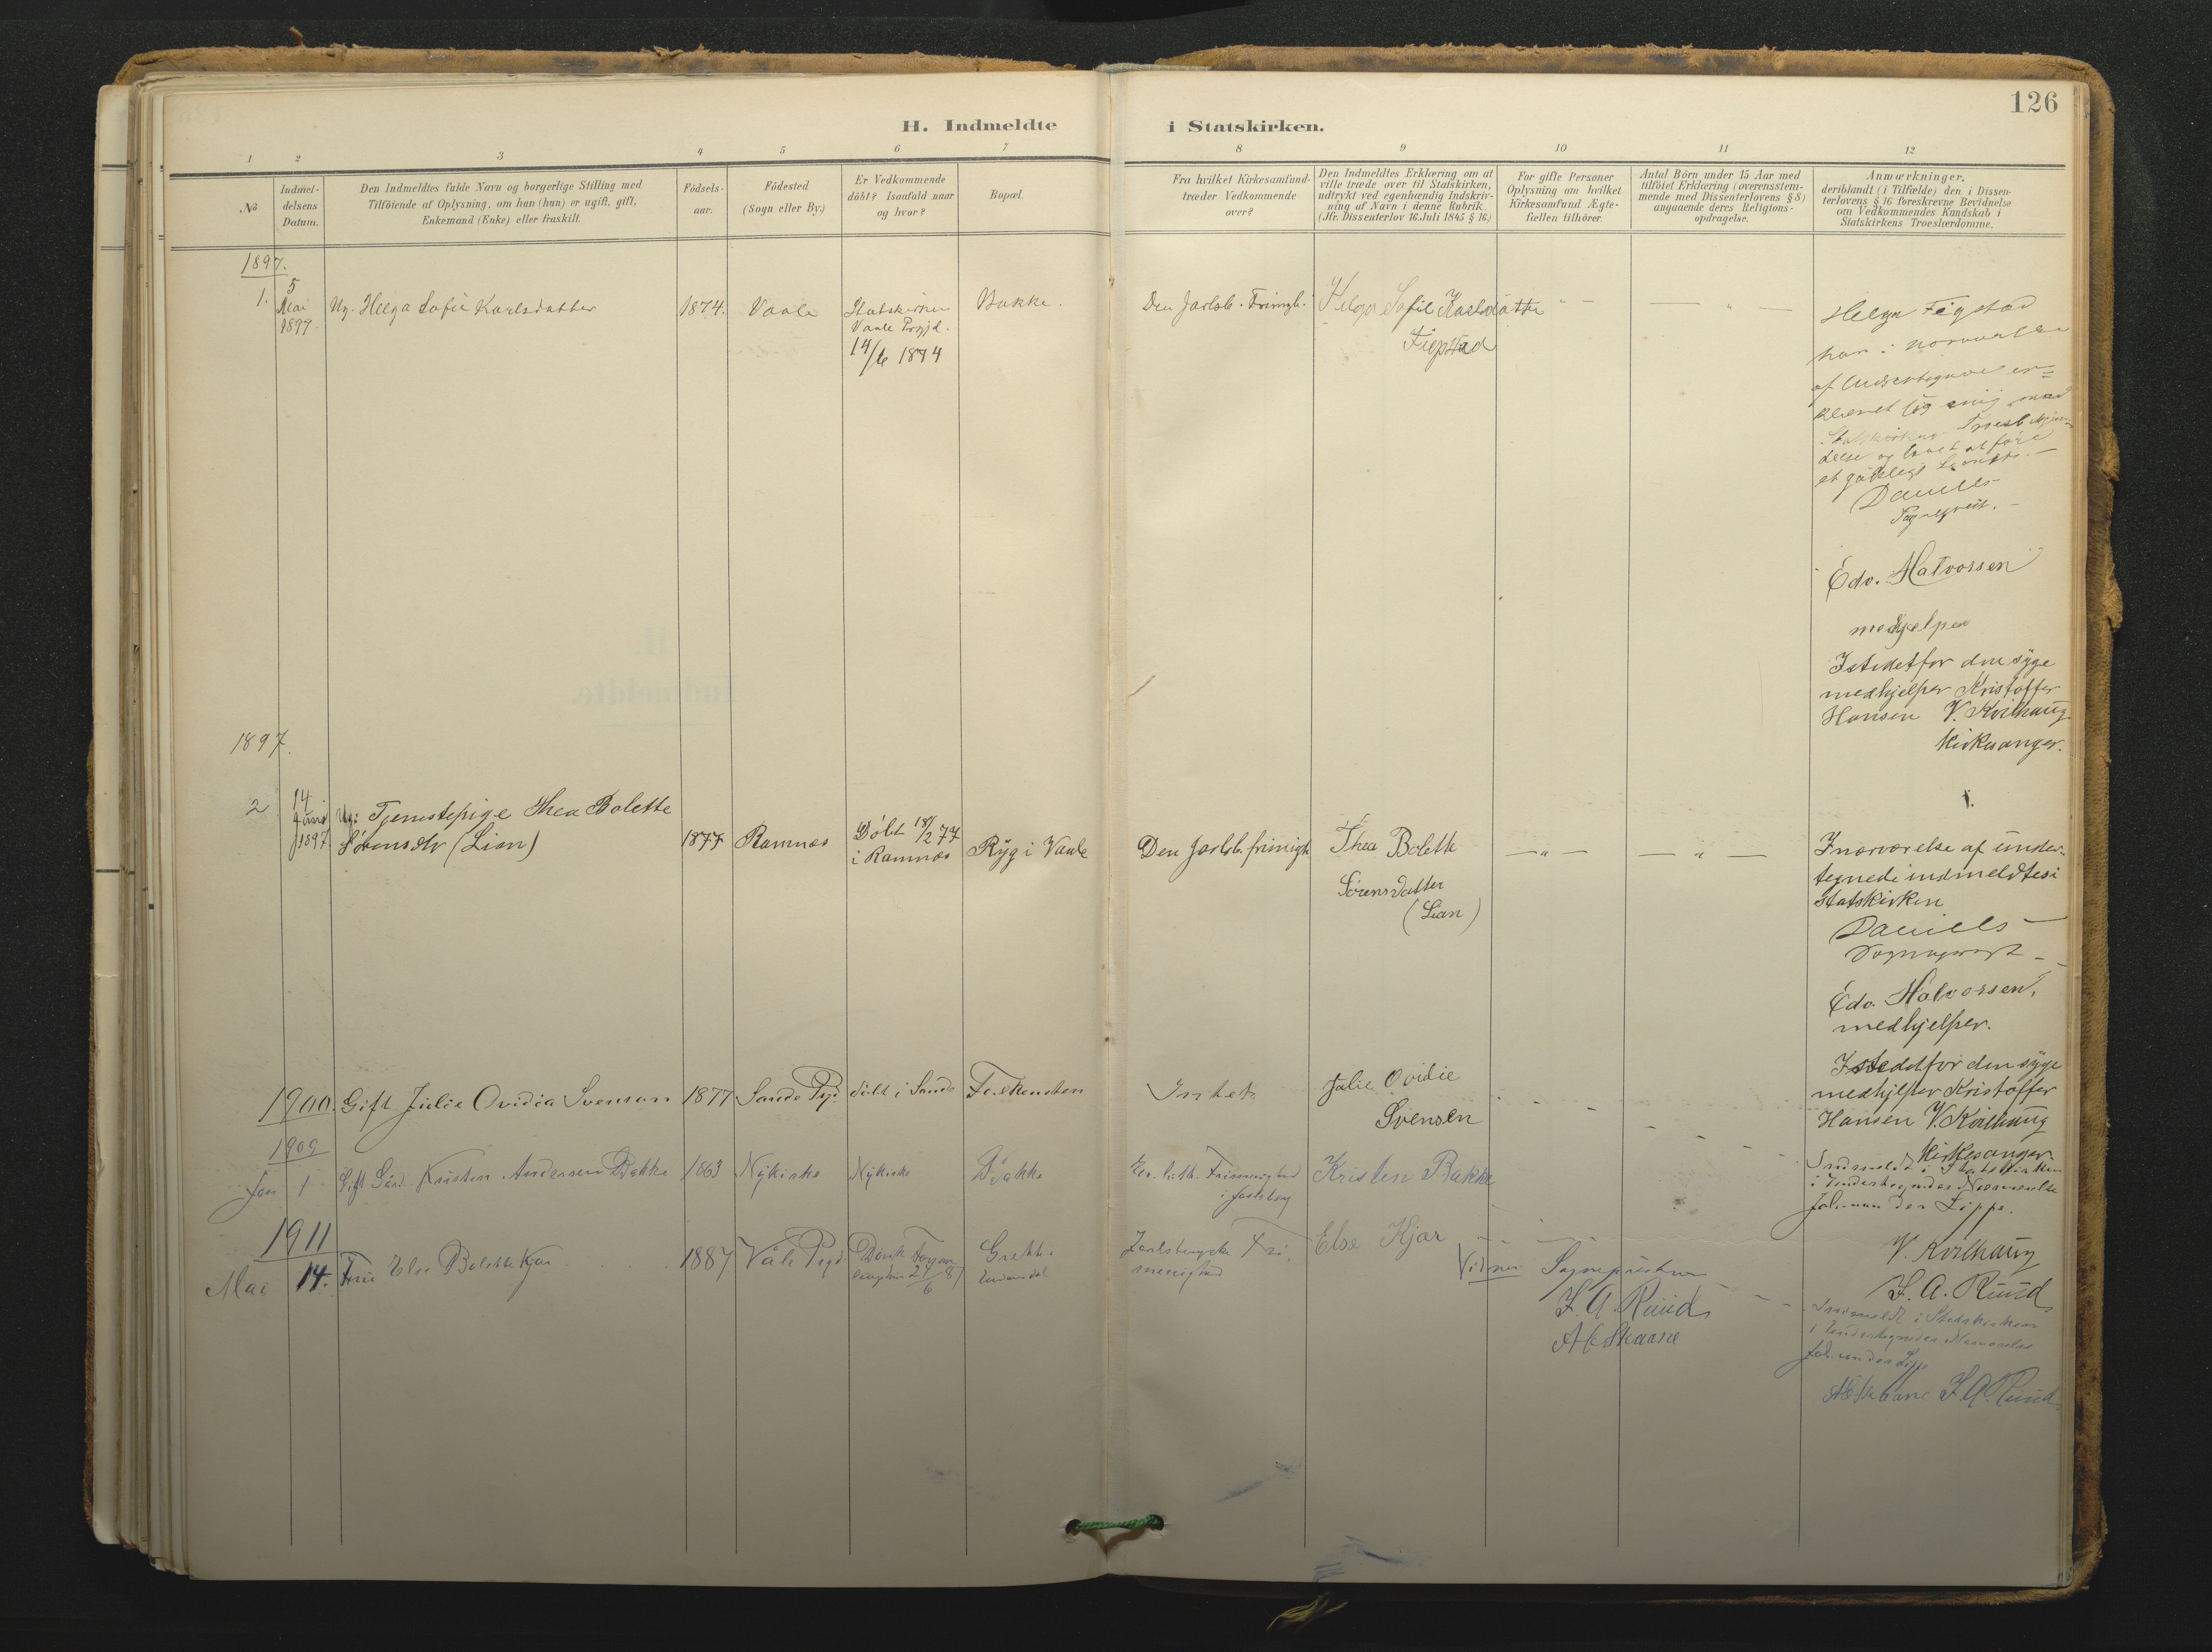 126
H. Indmeldte i Statskirken.
1 2 3 4 5 6 7 8 9 10 11 12
No
Indmel-
delsens
Datum.
Den Indmeldtes fulde Navn og borgerlige Stilling med
Tilföiende af Oplysning, om han (hun) er ugift, gift,
Enkemand (Enke) eller fraskilt.
Födsels-
aar.
Födested
(Sogn eller By.)
Er Vedkommende
döbt? Isaafald naar
og hvor?
Bopæl.
Fra hvilket Kirkesamfund
træder Vedkommende
over?
Den Indmeldtes Erklæring om at
ville træde over til Statskirken,
udtrykt ved egenhændig Indskriv-
ning af Navn i denne Rubrik.
(Jfr. Dissenterlov 16 Juli 1845 § 16.)
For gifte Personer
Oplysning om hvilket
Kirkesamfund Ægte-
fællen tilhörer.
Antal Börn under 15 Aar med
tilföiet Erklæring (overensstem-
mende med Dissenterlovens § 8)
angaaende deres Religions-
opdragelse.
Anmærkninger,
deriblandt (i Tilfælde) den i Dissen-
terlovens § 16 foreskrevne Bevidnelse
om Vedkommendes Kundskab i
Statskirkens Troeslærdomme.
1897.
1.
5
Mai
1897.
Ug. Helga Sofie Karlsdatter
1874.
Vaale
Statskirken
Vaale Prgjd.
14/6 1874
Bakke.
Den Jarlsb. Frimgh.
Helga Sofie Karlsdatter
Figstad
Helga Figstad
har i nærværelse
af Undertegnede er=
klæret sig enig med
Statskirkens Troesbekjen-
delse og lovet at føre
et gudeligt Levnet. —
Daniels
Sogneprest. —
Edv. Halvorsen
medhjelper
Istedetfor den syge
medhjelper Kristoffer
Hansen V. Kvilhaug
Kirkesanger.
1897.
2
14
Juni
1897.
Ug: Tjenestepige Thea Bolette
Sörensdtr (Lian)
1877
Ramnæs
Döbt 18/2 77
i Ramnæs
Ryg i Vaale
Den Jarlsb. frimigh
Thea Bolette
Sörensdatter
(Lian)
I nærværelse af under-
tegnede indmeldtes i
statskirken
Daniels
Sogneprest
Edv. Halvorsen,
medhjelper.
Istedetfor den syge
medhjelper Kristoffer
Hansen V. Kvilhaug
Kirkesanger.
1900.
Gift Julie Ovidia Svensen
1877
Sande Pgd.
döbt i Sande
Falkensten
Intet
Julie Ovidie
Svensen
1909
Jan 1
Gift Gård. Kristen Andersen Bakke
1863
Nykirke
Nykirke
Bakke
Ev. luth. Frimenighed
i Jarlsberg
Kristen Bakke
Indmeldt i Statskirken
i Undertegnedes Nærværelse
Joh. van der Lippe.
V. Kvilhaug
F. A. Ruud
1911
Mai 14.
Else Bolette Kjær
1887
Våle Pgd.
Jarlsbergske Fri-
menighed
Else Kjær
Vidner: Sognepresten
F. A. Ruud
A. Skaane
Indmeldt i Statskirken
i Undertegnedes Nærværelse
Joh. van der Lippe
F. A. Ruud